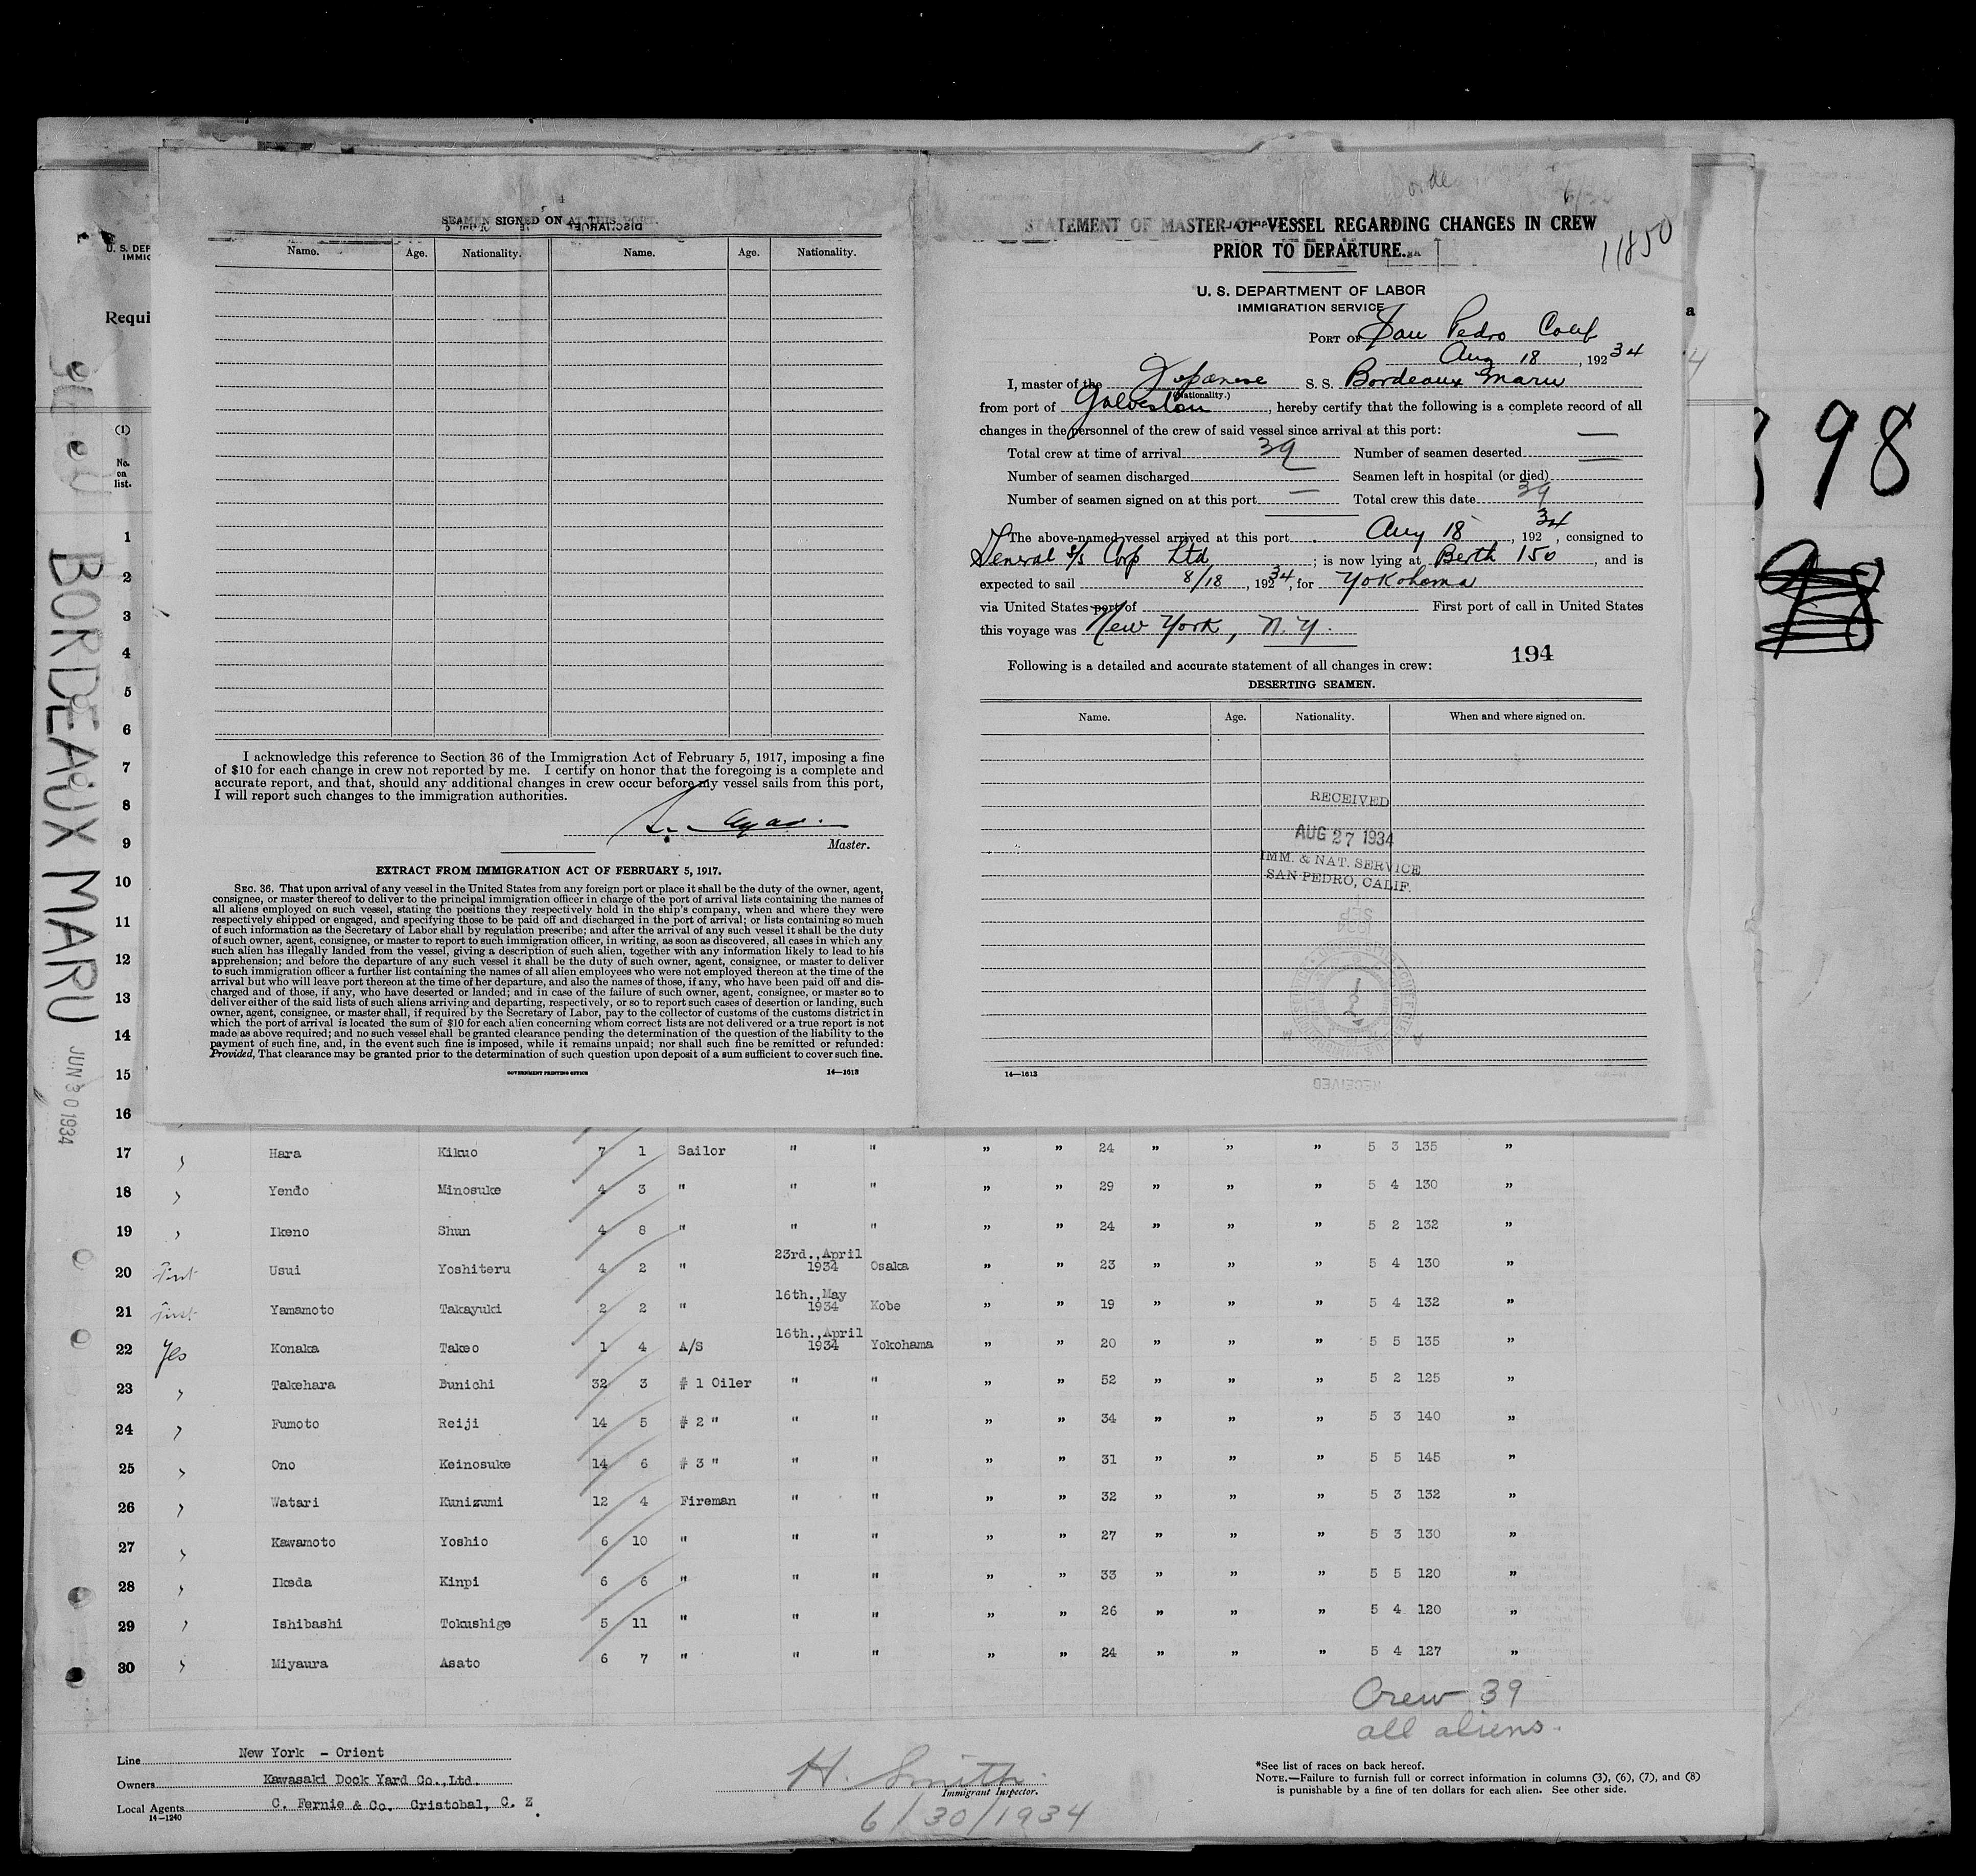 SEAMEN SIGNED ON AT THIS PORT.
Name. Age. Nationality. Name. Age. Nationality.
I acknowledge this reference to Section 36 of the Immigration Act of February 5, 1917, imposing a fine
of $10 for each change in crew not reported by me. I certify on honor that the foregoing is a complete and
accurate report, and that, should any additional changes in crew occur before my vessel sails from this port,
I will report such changes to the immigration authorities.
Master.
EXTRACT FROM IMMIGRATION ACT OF FEBRUARY 5, 1917.
SEC. 36. That upon arrival of any vessel in the United States from any foreign port or place it shall be the duty of the owner, agent,
consignee, or master thereof to deliver to the principal immigration officer in charge of the port of arrival lists containing the names of
all aliens employed on such vessel, stating the positions they respectively hold in the ship's company, when and where they were
respectively shipped or engaged, and specifying those to be paid off and discharged in the port of arrival; or lists containing so much
of such information as the Secretary of Labor shall by regulation prescribe; and after the arrival of any such vessel it shall be the duty
of such owner, agent, consignee, or master to report to such immigration officer, in writing, as soon as discovered, all cases in which any
such alien has illegally landed from the vessel, giving a description of such alien, together with any information likely to lead to his
apprehension; and before the departure of any such vessel it shall be the duty of such owner, agent, consignee, or master to deliver
to such immigration officer a further list containing the names of all alien employees who were not employed thereon at the time of the
arrival but who will leave port thereon at the time of her departure, and also the names of those, if any, who have been paid off and dis-
charged and of those, if any, who have deserted or landed; and in case of the failure of such owner, agent, consignee, or master so to
deliver either of the said lists of such aliens arriving and departing, respectively, or so to report such cases of desertion or landing, such
owner, agent, consignee, or master shall, if required by the Secretary of Labor, pay to the collector of customs of the customs district in
which the port of arrival is located the sum of $10 for each alien concerning whom correct lists are not delivered or a true report is not
made as above required; and no such vessel shall be granted clearance pending the determination of the question of the liability to the
payment of such fine, and, in the event such fine is imposed, while it remains unpaid; nor shall such fine be remitted or refunded:
Provided, That clearance may be granted prior to the determination of such question upon deposit of a sum sufficient to cover such fine.
GOVERNMENT PRINTING OFFICE 14—1613
STATEMENT OF MASTER OF VESSEL REGARDING CHANGES IN CREW
PRIOR TO DEPARTURE.
11850
U. S. DEPARTMENT OF LABOR
IMMIGRATION SERVICE
PORT OF San Pedro Calif
Aug 18, 192 34
I, master of the Japanese S. S. Bordeaux Maru
(Nationality.)
from port of Galveston, hereby certify that the following is a complete record of all
changes in the personnel of the crew of said vessel since arrival at this port:
Total crew at time of arrival 39 Number of seamen deserted —
Number of seamen discharged Seamen left in hospital (or died) —
Number of seamen signed on at this port — Total crew this date 39
The above-named vessel arrived at this port Aug 18, 192 34, consigned to
General S/S Corp Ltd; is now lying at Berth 150, and is
expected to sail 8/18, 192 34, for Yokohama
via United States port of First port of call in United States
this voyage was New York, N.Y.
194
Following is a detailed and accurate statement of all changes in crew:
DESERTING SEAMEN.
Name. Age. Nationality. When and where signed on.
RECEIVED
AUG 27 1934
IMM. & NAT. SERVICE
SAN PEDRO, CALIF.
14—1613
U. S. DEP
IMMIG
Requi
(1)
No.
on
list.
BORDEAUX MARU
JUN 30 1934
98
1
2
3
4
5
6
7
8
9
10
11
12
13
14
15
16
17 Hara Kikuo 7 1 Sailor " " " " 24 " " " 5 3 135 "
18 Yendo Minosuke 4 3 " " " " " 29 " " " 5 4 130 "
19 Ikeno Shun 4 8 " " " " " 24 " " " 5 2 132 "
20 First Usui Yoshiteru 4 2 " 23rd.,April 1934 Osaka " " 23 " " " 5 4 130 "
21 First Yamamoto Takayuki 2 2 " 16th.,May 1934 Kobe " " 19 " " " 5 4 132 "
22 Yes Konaka Takeo 1 4 A/S 16th.,April 1934 Yokohama " " 20 " " " 5 5 135 "
23 Takehara Bunichi 32 3 # 1 Oiler " " " " 52 " " " 5 2 125 "
24 Fumoto Reiji 14 5 # 2 " " " " " 34 " " " 5 3 140 "
25 Ono Keinosuke 14 6 # 3 " " " " " 31 " " " 5 5 145 "
26 Watari Kunizumi 12 4 Fireman " " " " 32 " " " 5 3 132 "
27 Kawamoto Yoshio 6 10 " " " " " 27 " " " 5 3 130 "
28 Ikeda Kinpi 6 6 " " " " " 33 " " " 5 5 120 "
29 Ishibashi Tokushige 5 11 " " " " " 26 " " " 5 4 120 "
30 Miyaura Asato 6 7 " " " " " 24 " " " 5 4 127 "
Crew 39
all aliens.
Line New York - Orient
Owners Kawasaki Dock Yard Co.,Ltd.
Local Agents C. Fernie & Co. Cristobal, C. Z.
14—1240
H. Smith
Immigrant Inspector.
6/30/1934
*See list of races on back hereof.
NOTE.—Failure to furnish full or correct information in columns (3), (6), (7), and (8)
is punishable by a fine of ten dollars for each alien. See other side.